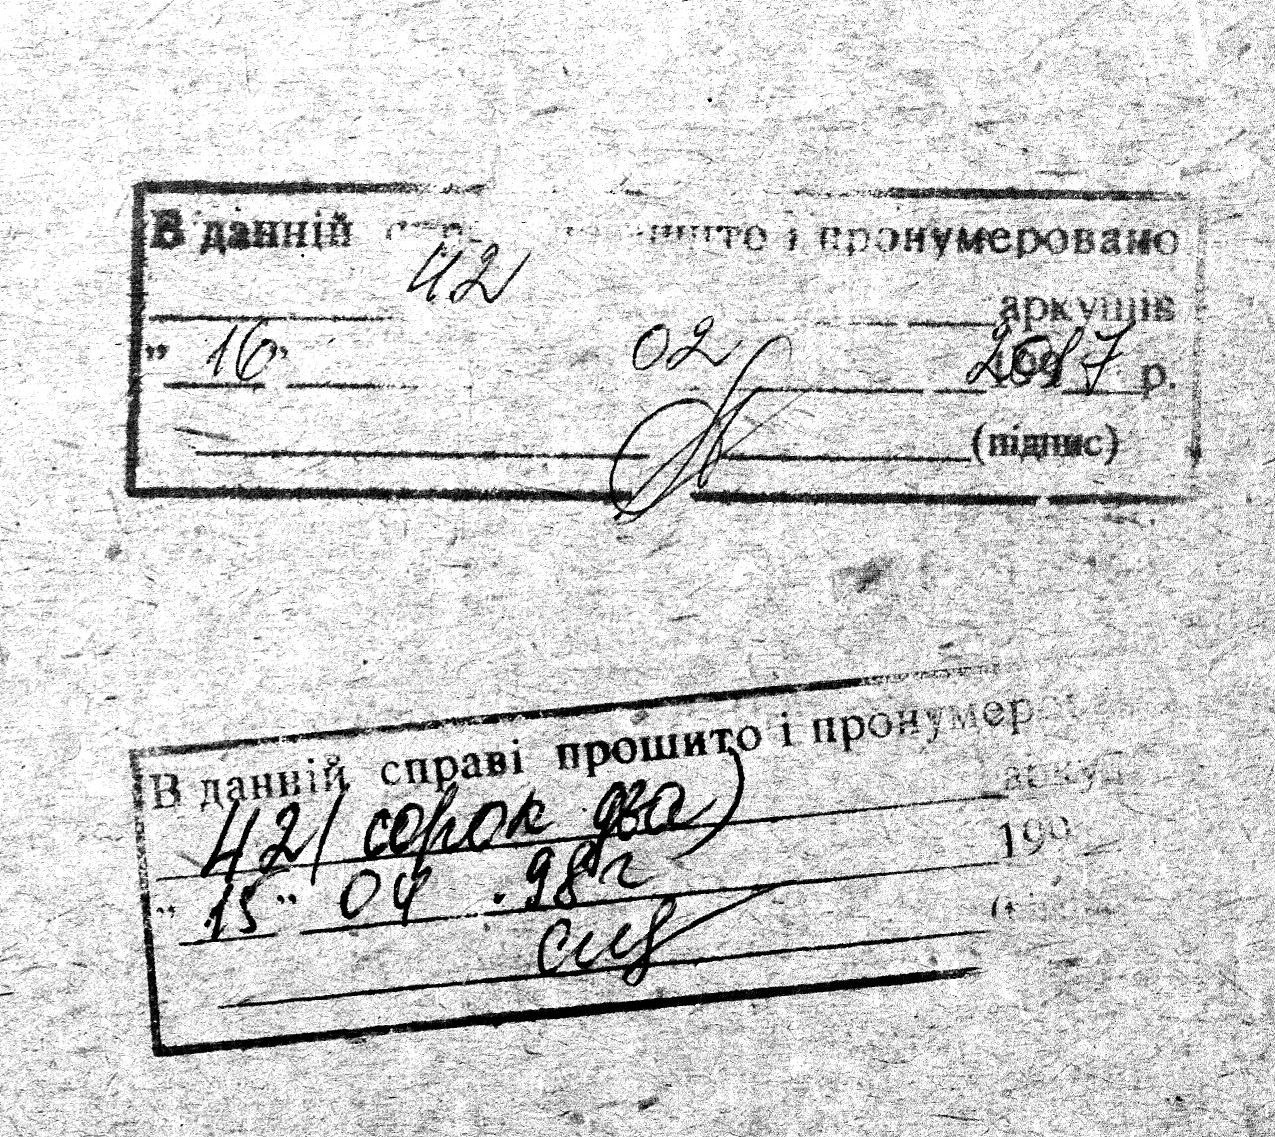 В данній прошито і пронумеровано
42
аркушів
„ 16 ” 02 2017 р.
(підпис)
В данній справі прошито і пронумеро
42 ( сорок два )
аркуш
„ 15 ” 04 . 98 г 199